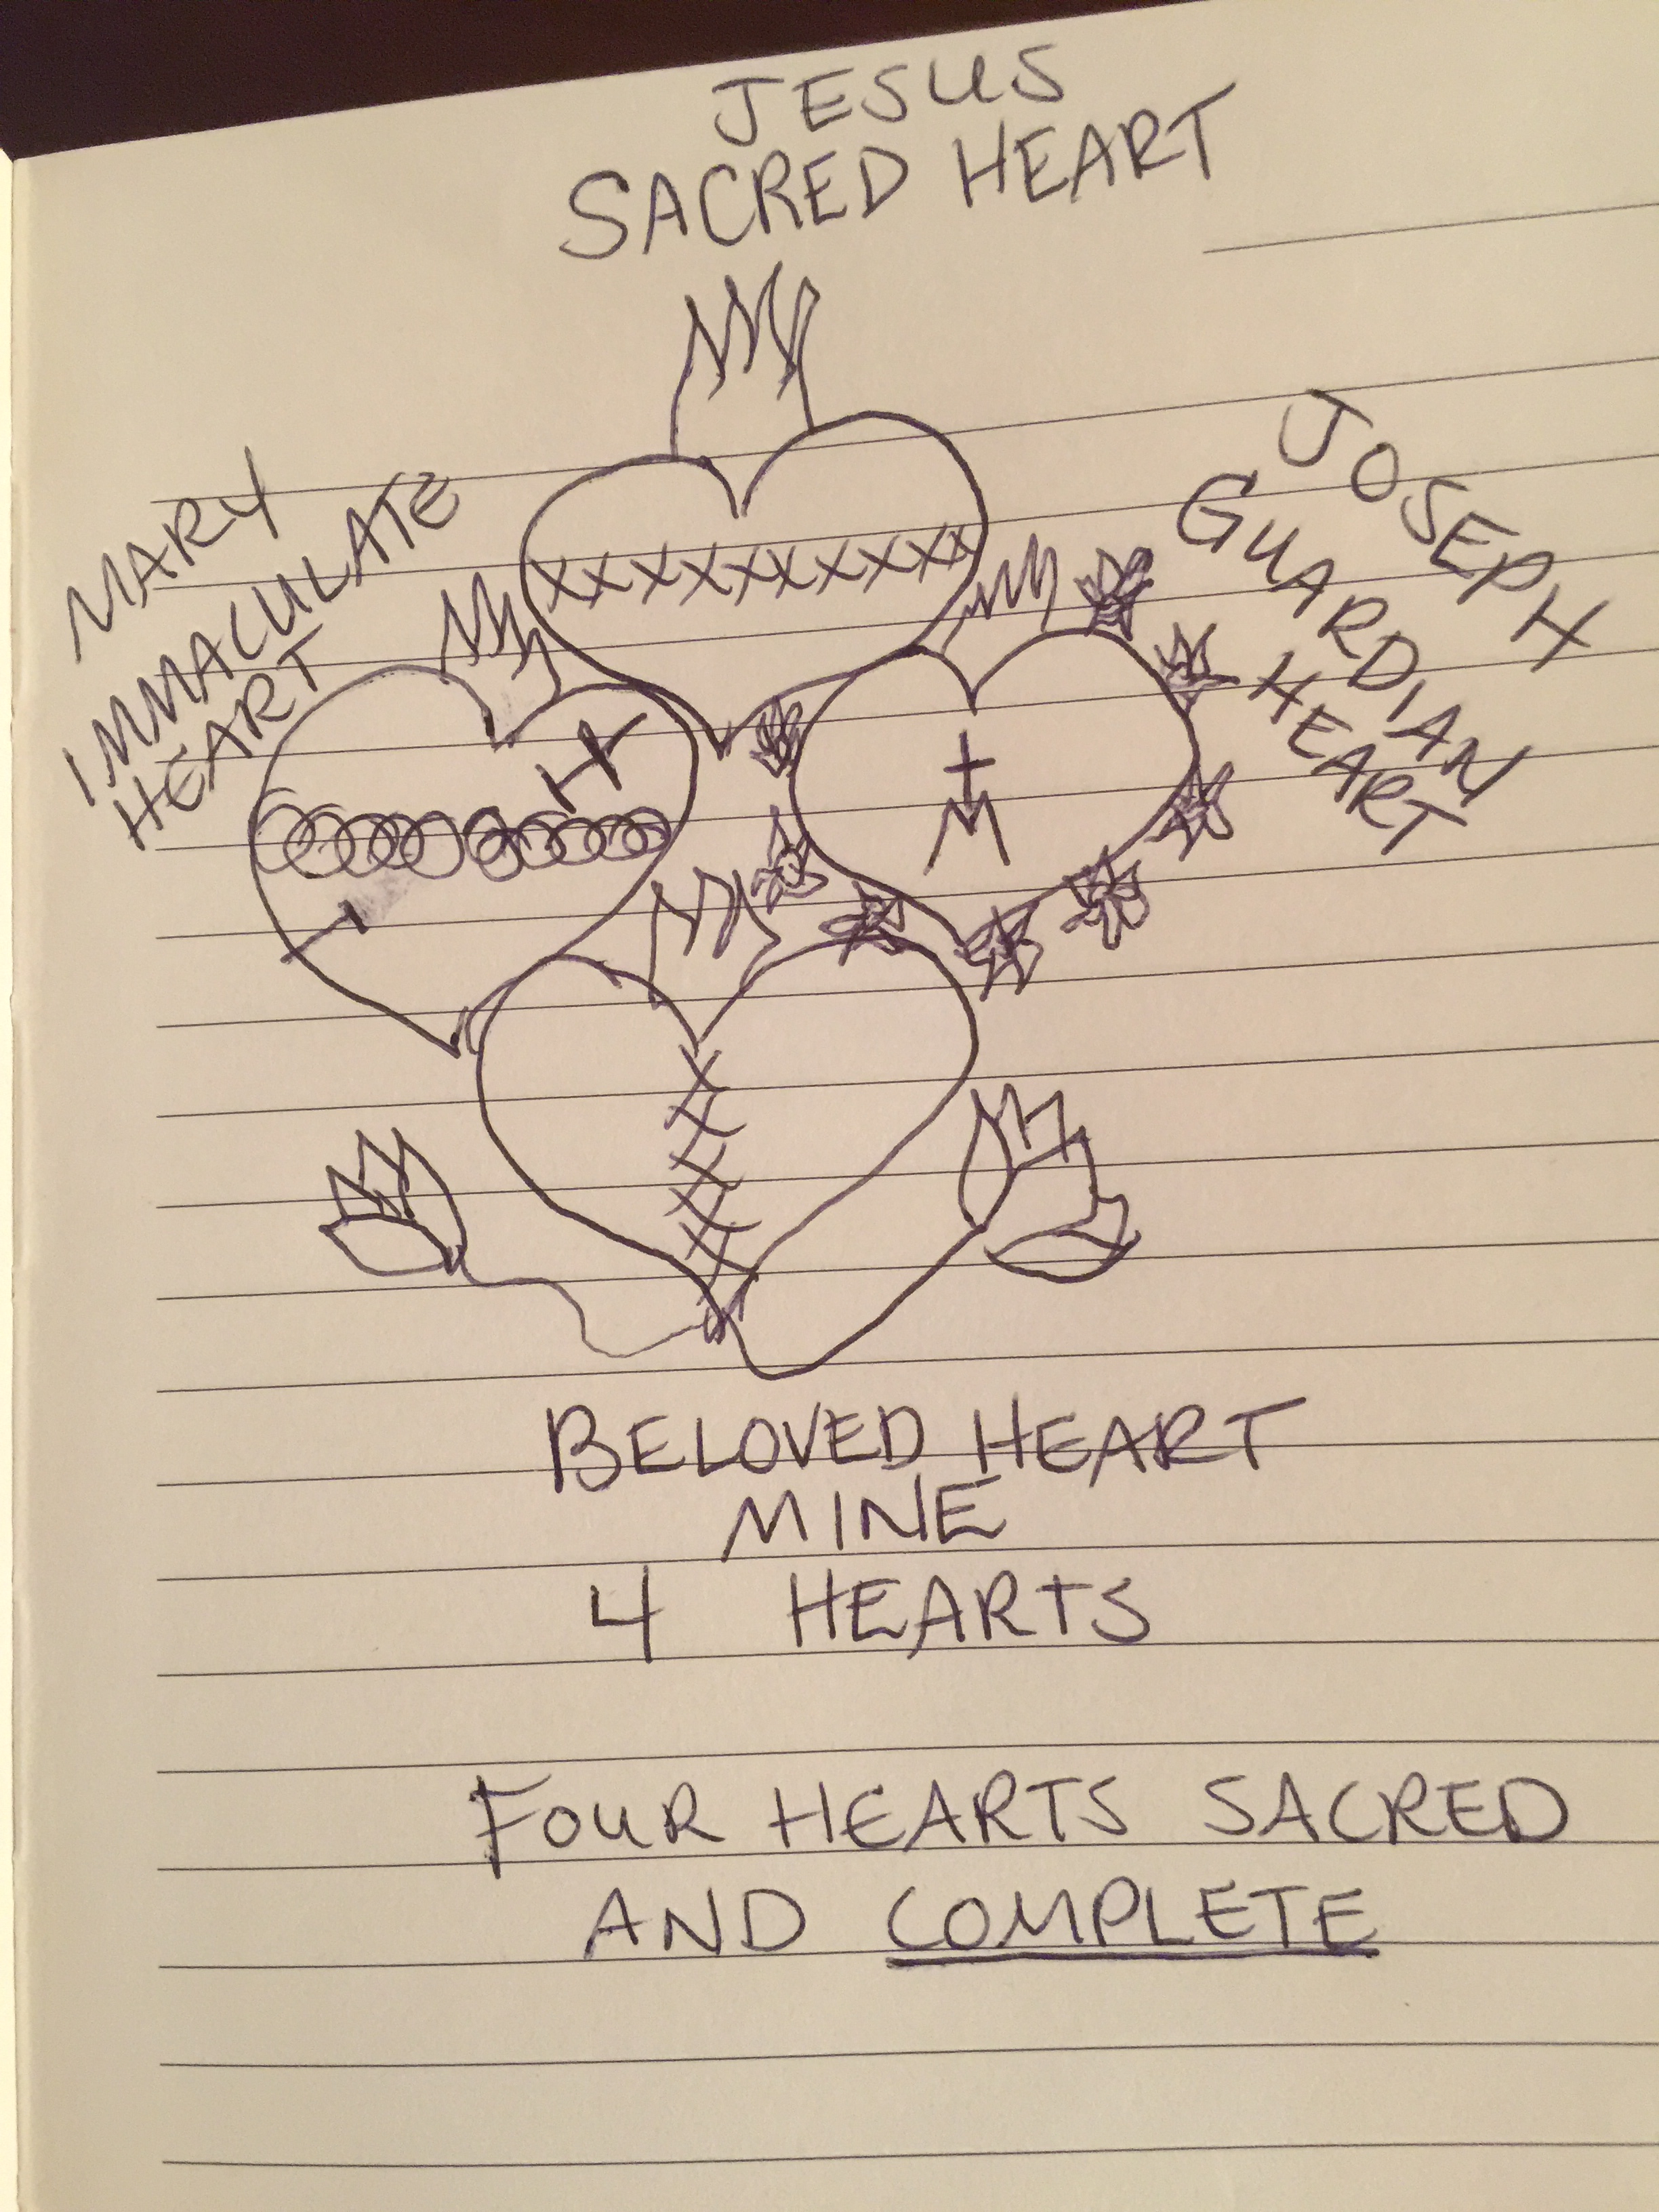 JESUS
SACRED HEART
MARY
IMMACULATE
HEART
JOSEPH
GUARDIAN
HEART
M
BELOVED HEART
MINE
4 HEARTS
FOUR HEARTS SACRED
AND COMPLETE